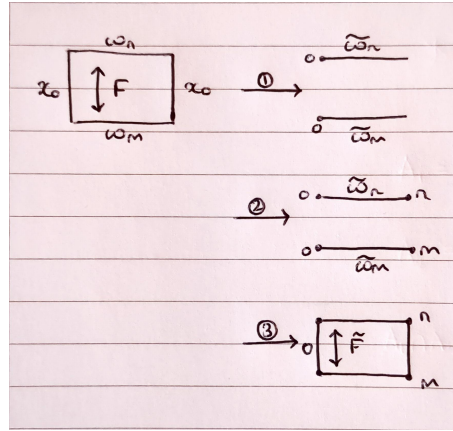 ωₙ
x₀ ↕ F x₀
ωₘ
① →
0 ω̃ₙ
0 ω̃ₘ
② →
0 ω̃ₙ n
0 ω̃ₘ m
③ →
n
0 ↕ F̃
m